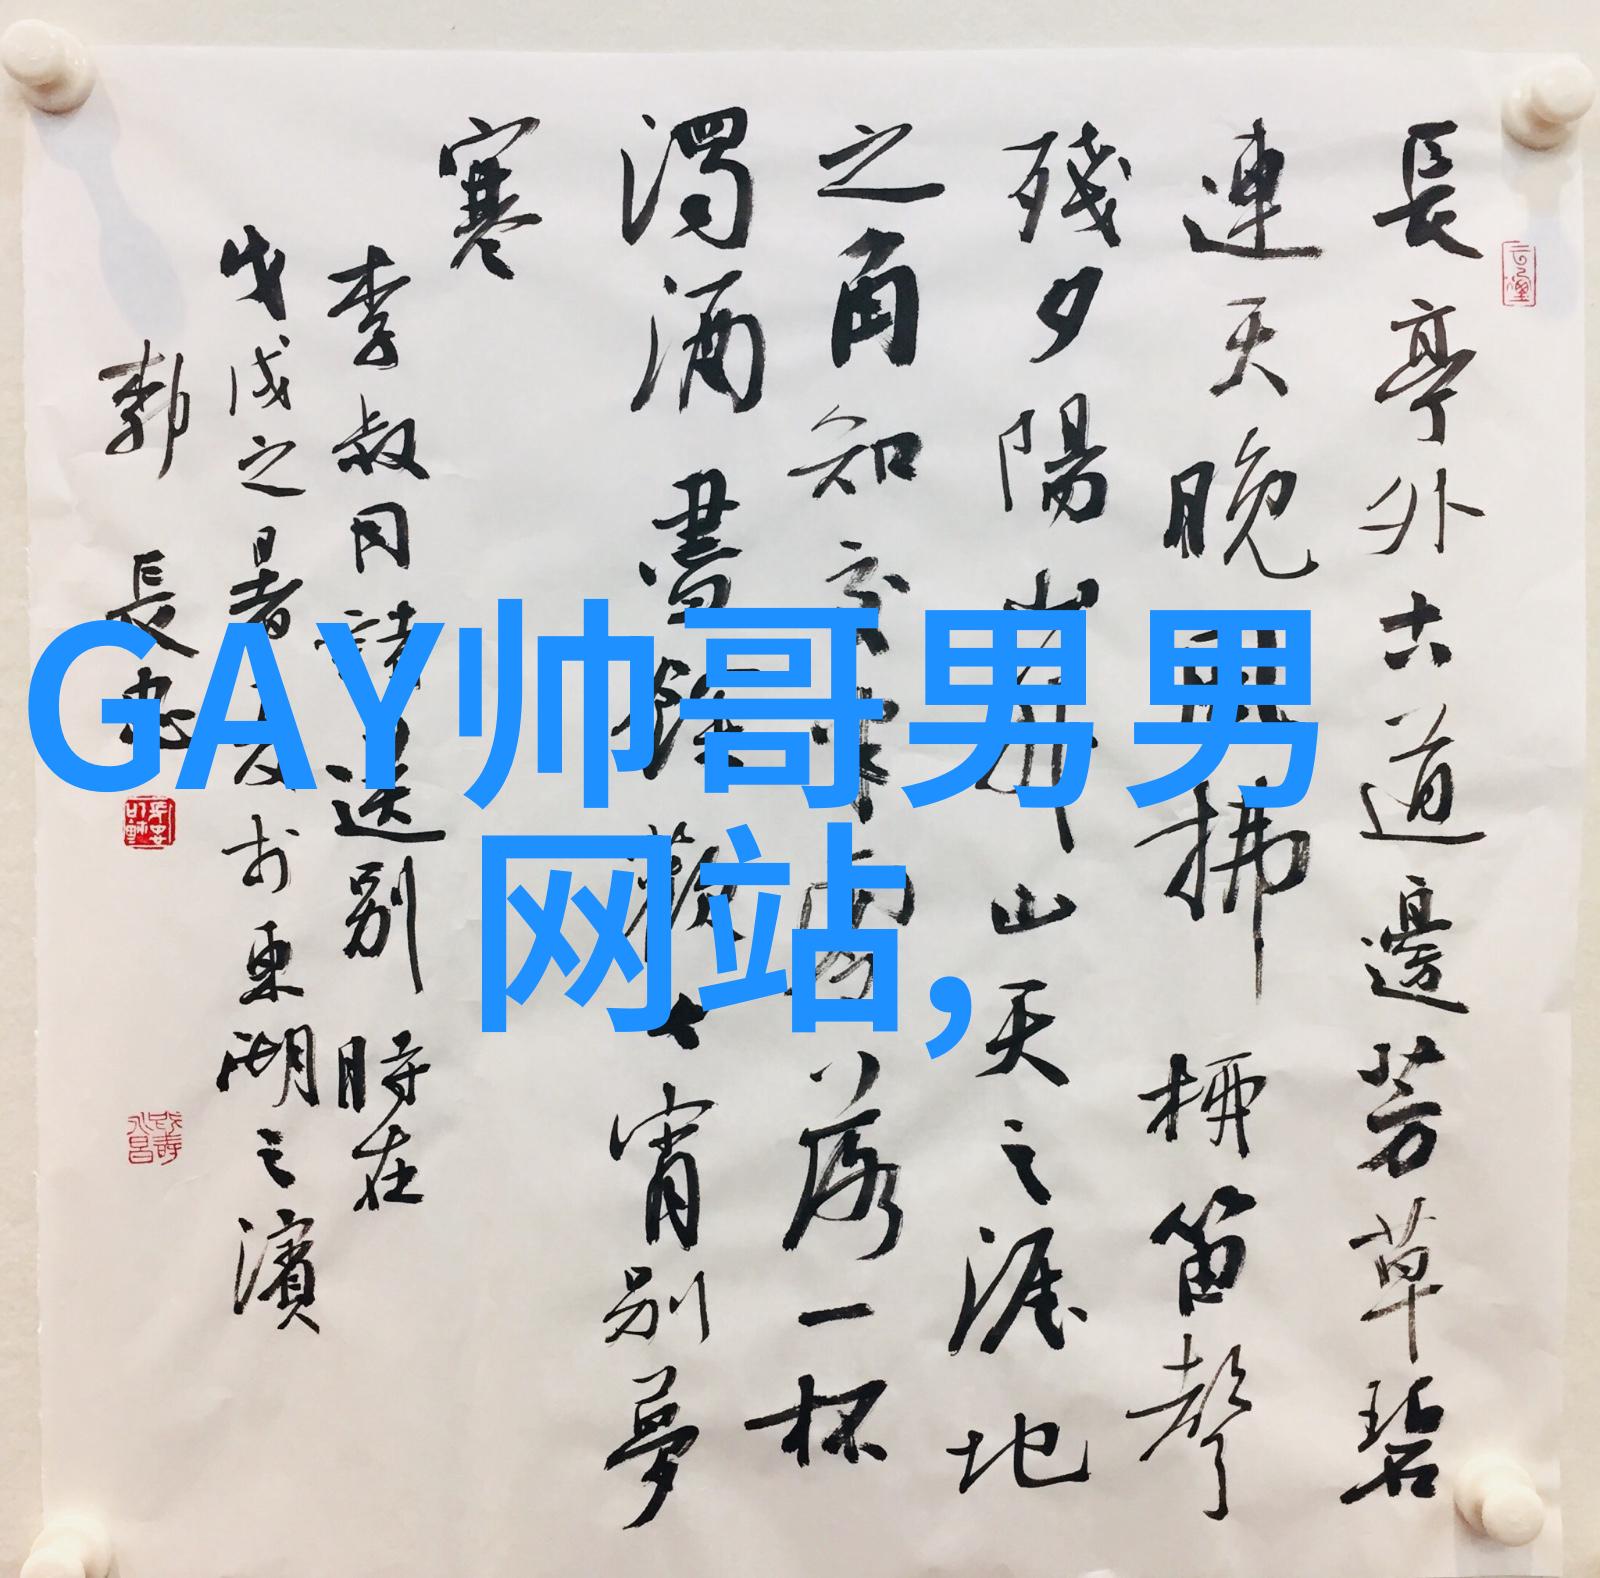 長亭外古道邊芳草碧
連天晚風拂柳笛聲
殘夕陽山外山天之涯地
之角知交半零落一杯
濁酒盡餘歡今宵別夢
寒
李叔同詩送別 時在
戊戌之暑
於東湖之濱
長
GAY帅哥男男
网站,